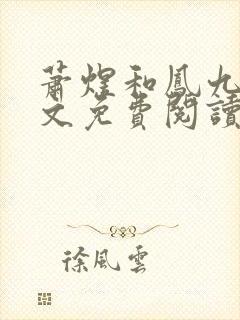 蕭煜和鳳九
文免費閱讀
徐風雲